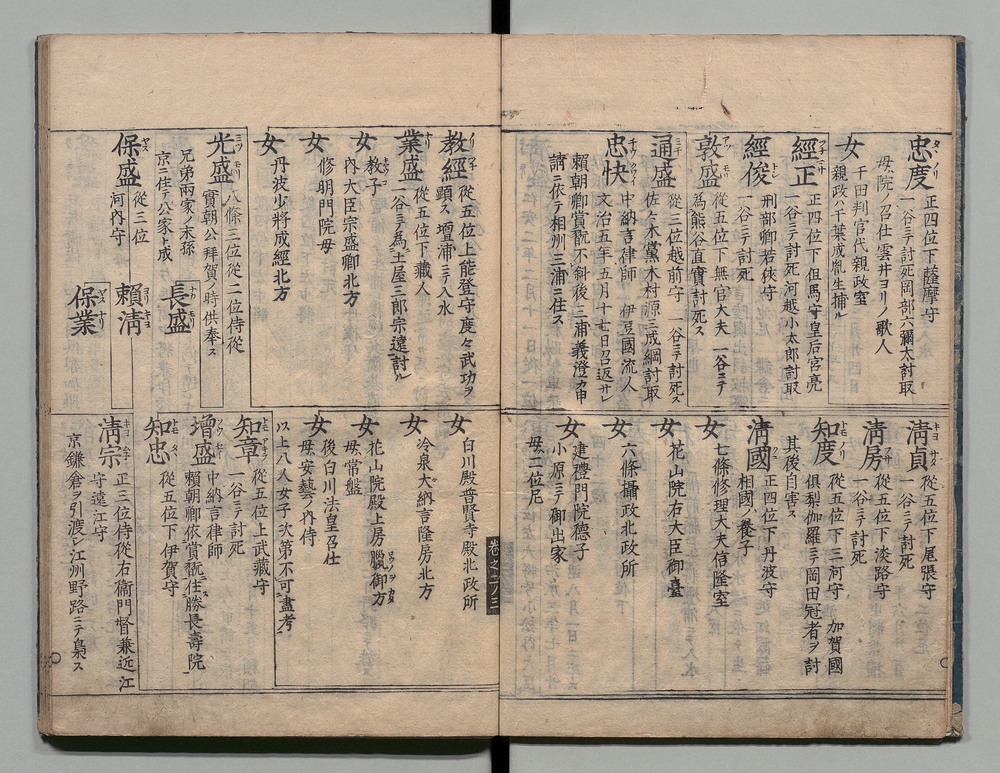 忠度 正四位下薩摩守
一谷ニテ討死岡部六彌太討取
母ハ院ノ召仕雲井ヨリノ歌人
女 千田判官代親政室
親政ハ千葉成胤生捕ル
經正 正四位下但馬守皇后宮亮
一谷ニテ討死河越小太郎討取
經俊 刑部卿若狹守
一谷ニテ討死
敦盛 從五位下無官大夫 一谷ニテ
爲熊谷直實討死ス
通盛 從三位越前守 一谷ニテ討死ス
佐々木黨木村源三成綱討取
忠快 中納言律師 伊豆國流人
文治五年五月十七日召返サレ
賴朝卿賞翫不斜後ニ三浦義澄カ申
請ニ依テ相州三浦ニ住ス
淸貞 從五位下尾張守
一谷ニテ討死
淸房 從五位下淡路守
一谷ニテ討死
知度 從五位下三河守 加賀國
俱梨伽羅ニテ岡田冠者ヲ討
其後自害ス
淸國 正四位下丹波守
相國ノ養子
女 七條修理大夫信隆室
女 花山院右大臣御臺
女 六條攝政北政所
女 建禮門院德子
小原ニテ御出家
母ハ二位尼
教經 從五位上能登守度々武功ヲ
顯ス壇浦ニテ入水
業盛 從五位下藏人
一谷ニテ爲土屋三郎宗遠討ル
女 教子
内大臣宗盛卿北方
女 修明門院母
女 丹波少將成經北方
光盛 八條三位從二位侍從
實朝公拜賀ノ時供奉ス
兄弟兩家ノ末孫
京ニ住テ公家ト成
長盛
保盛 從三位
河内守
賴淸
保業
卷之二ノ三
女 白川殿普賢寺殿北政所
女 冷泉大納言隆房北方
女 花山院殿上房 臘御方
母ハ常盤
女 後白川法皇召仕
母ハ安藝ノ内侍
以上八人女子次第不可盡考
知章 從五位上武藏守
一谷ニテ討死
增盛 中納言律師
賴朝卿依賞翫住勝長壽院
知忠 從五位下伊賀守
淸宗 正三位侍從右衞門督兼近江
守遠江守
京鎌倉ヲ引渡シ江州野路ニテ梟ス